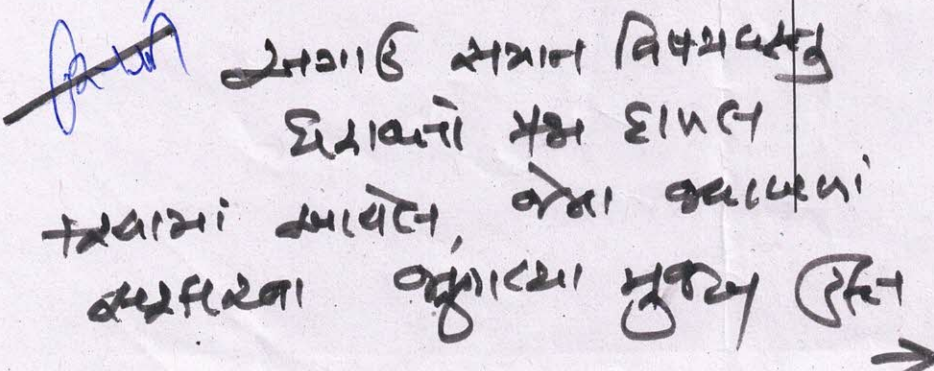 અગાઉ સમાન વિષયવસ્તુ
ધરાવતો પ્રશ્ન દાખલ
કરવામાં આવેલ, જેના જવાબમાં
સરકારના મુજબ